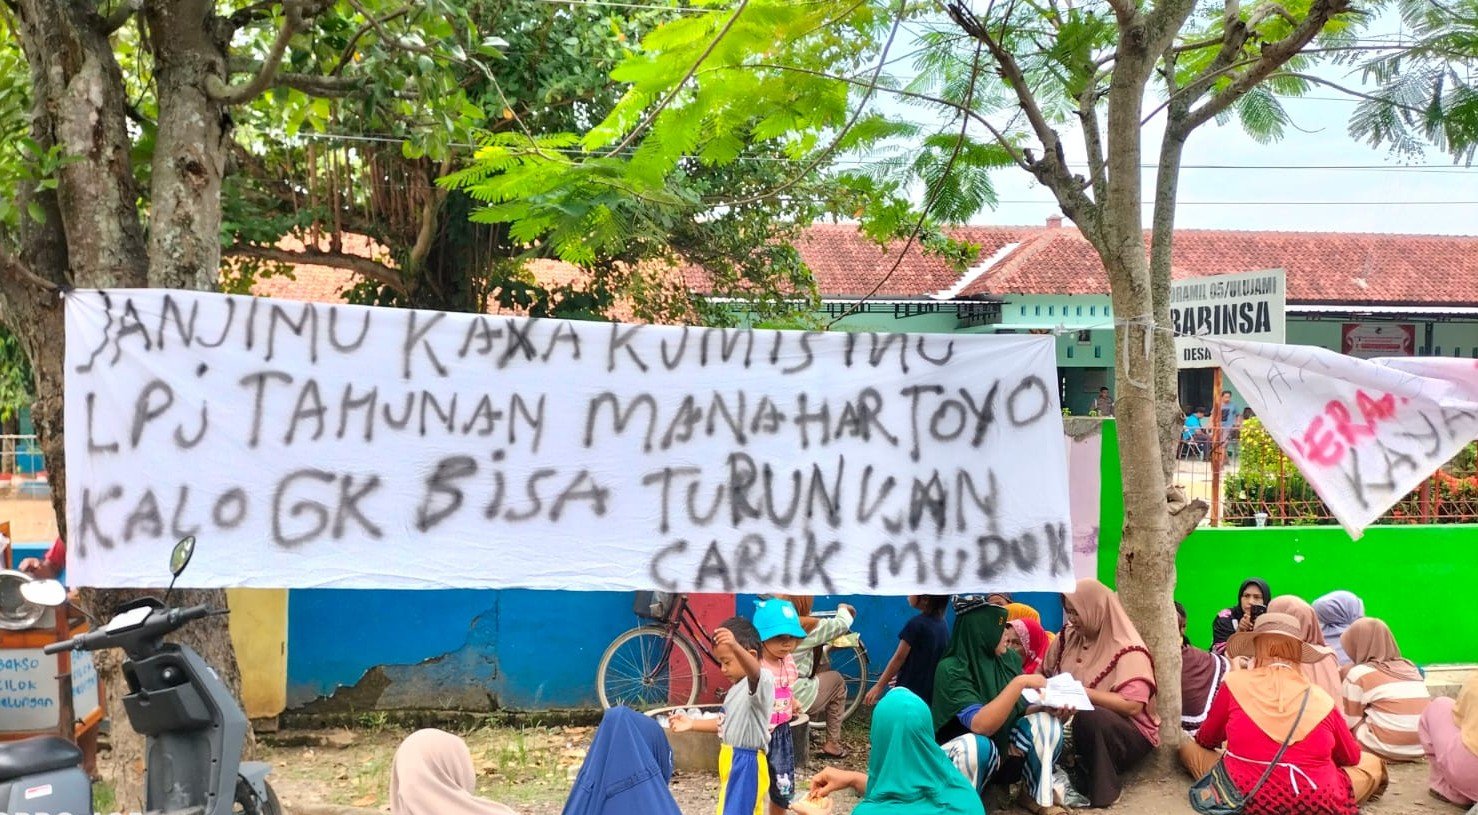 JANJIMU KAYA KUMISMU
LPJ TAHUNAN MANA HARTOYO
KALO GK BISA TURUNKAN
CARIK MUDUN
ORAMIL 05/ULUJAMI
BABINSA
DESA
KAYA
BAKSO
CILOK